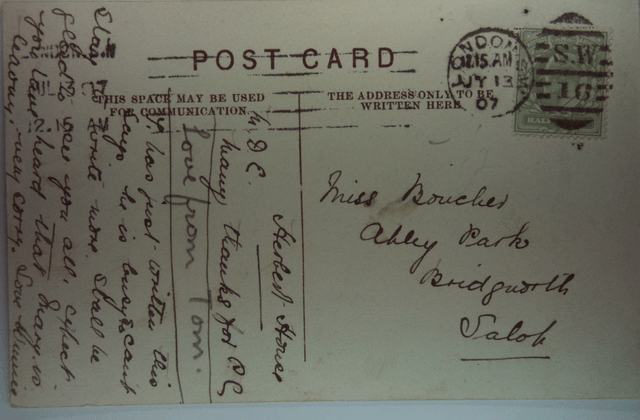 POST CARD
THIS SPACE MAY BE USED
FOR COMMUNICATION.
THE ADDRESS ONLY TO BE
WRITTEN HERE.
LONDON S.W
12.15 AM
JY 13
07
S.W.
16
Miss Boucher
Abley Park
Bridgnorth
Salop
Herbert House
D. C.
many thanks for P.C
Love from Tom.
has just written this
says he is busy & cant
write now. Shall be
glad to see you all. Expect
you have heard that Mary is
very